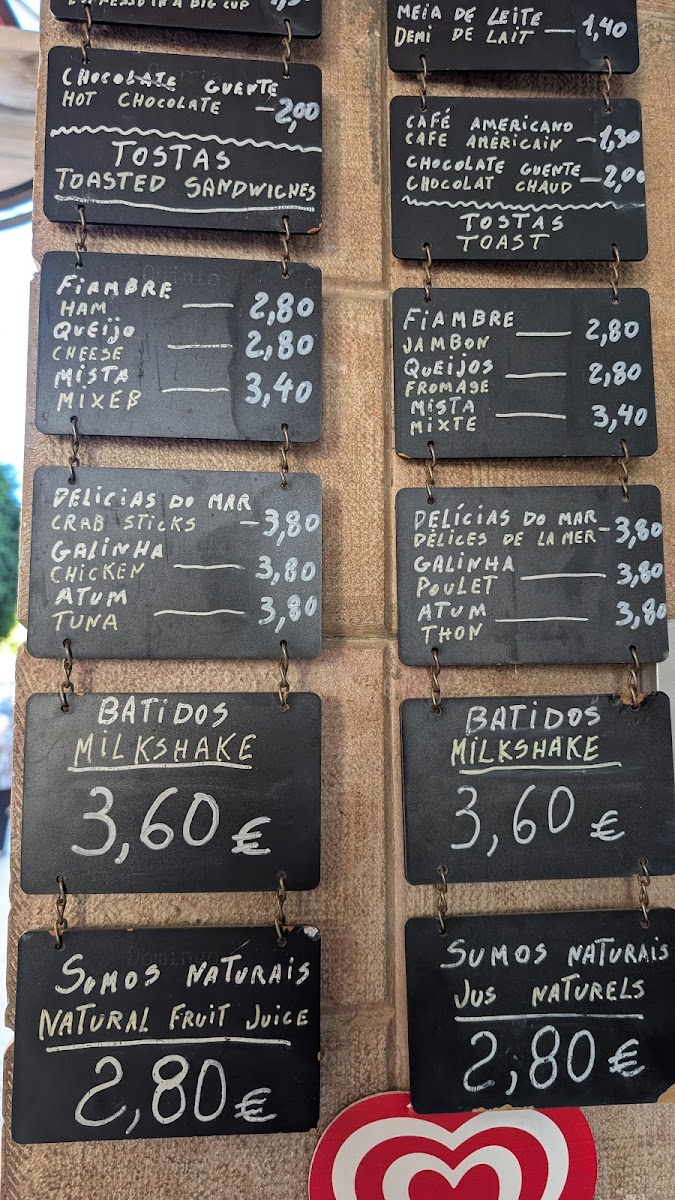 CHOCOLATE QUENTE
HOT CHOCOLATE — 2,00
TOSTAS
TOASTED SANDWICHES
FIAMBRE
HAM — 2,80
QUEIJO
CHEESE — 2,80
MISTA
MIXEB — 3,40
DELICIAS DO MAR
CRAB STICKS — 3,80
GALINHA
CHICKEN — 3,80
ATUM
TUNA — 3,80
BATIDOS
MILKSHAKE
3,60 €
SUMOS NATURAIS
NATURAL FRUIT JUICE
2,80 €
MEIA DE LEITE
DEMI DE LAIT — 1,40
CAFÉ AMERICANO
CAFE AMÉRICAIN — 1,30
CHOCOLATE QUENTE
CHOCOLAT CHAUD — 2,00
TOSTAS
TOAST
FIAMBRE
JAMBON — 2,80
QUEIJOS
FROMAGE — 2,80
MISTA
MIXTE — 3,40
DELÍCIAS DO MAR
DÉLICES DE LA MER — 3,80
GALINHA
POULET — 3,80
ATUM
THON — 3,80
BATIDOS
MILKSHAKE
3,60 €
SUMOS NATURAIS
JUS NATURELS
2,80 €